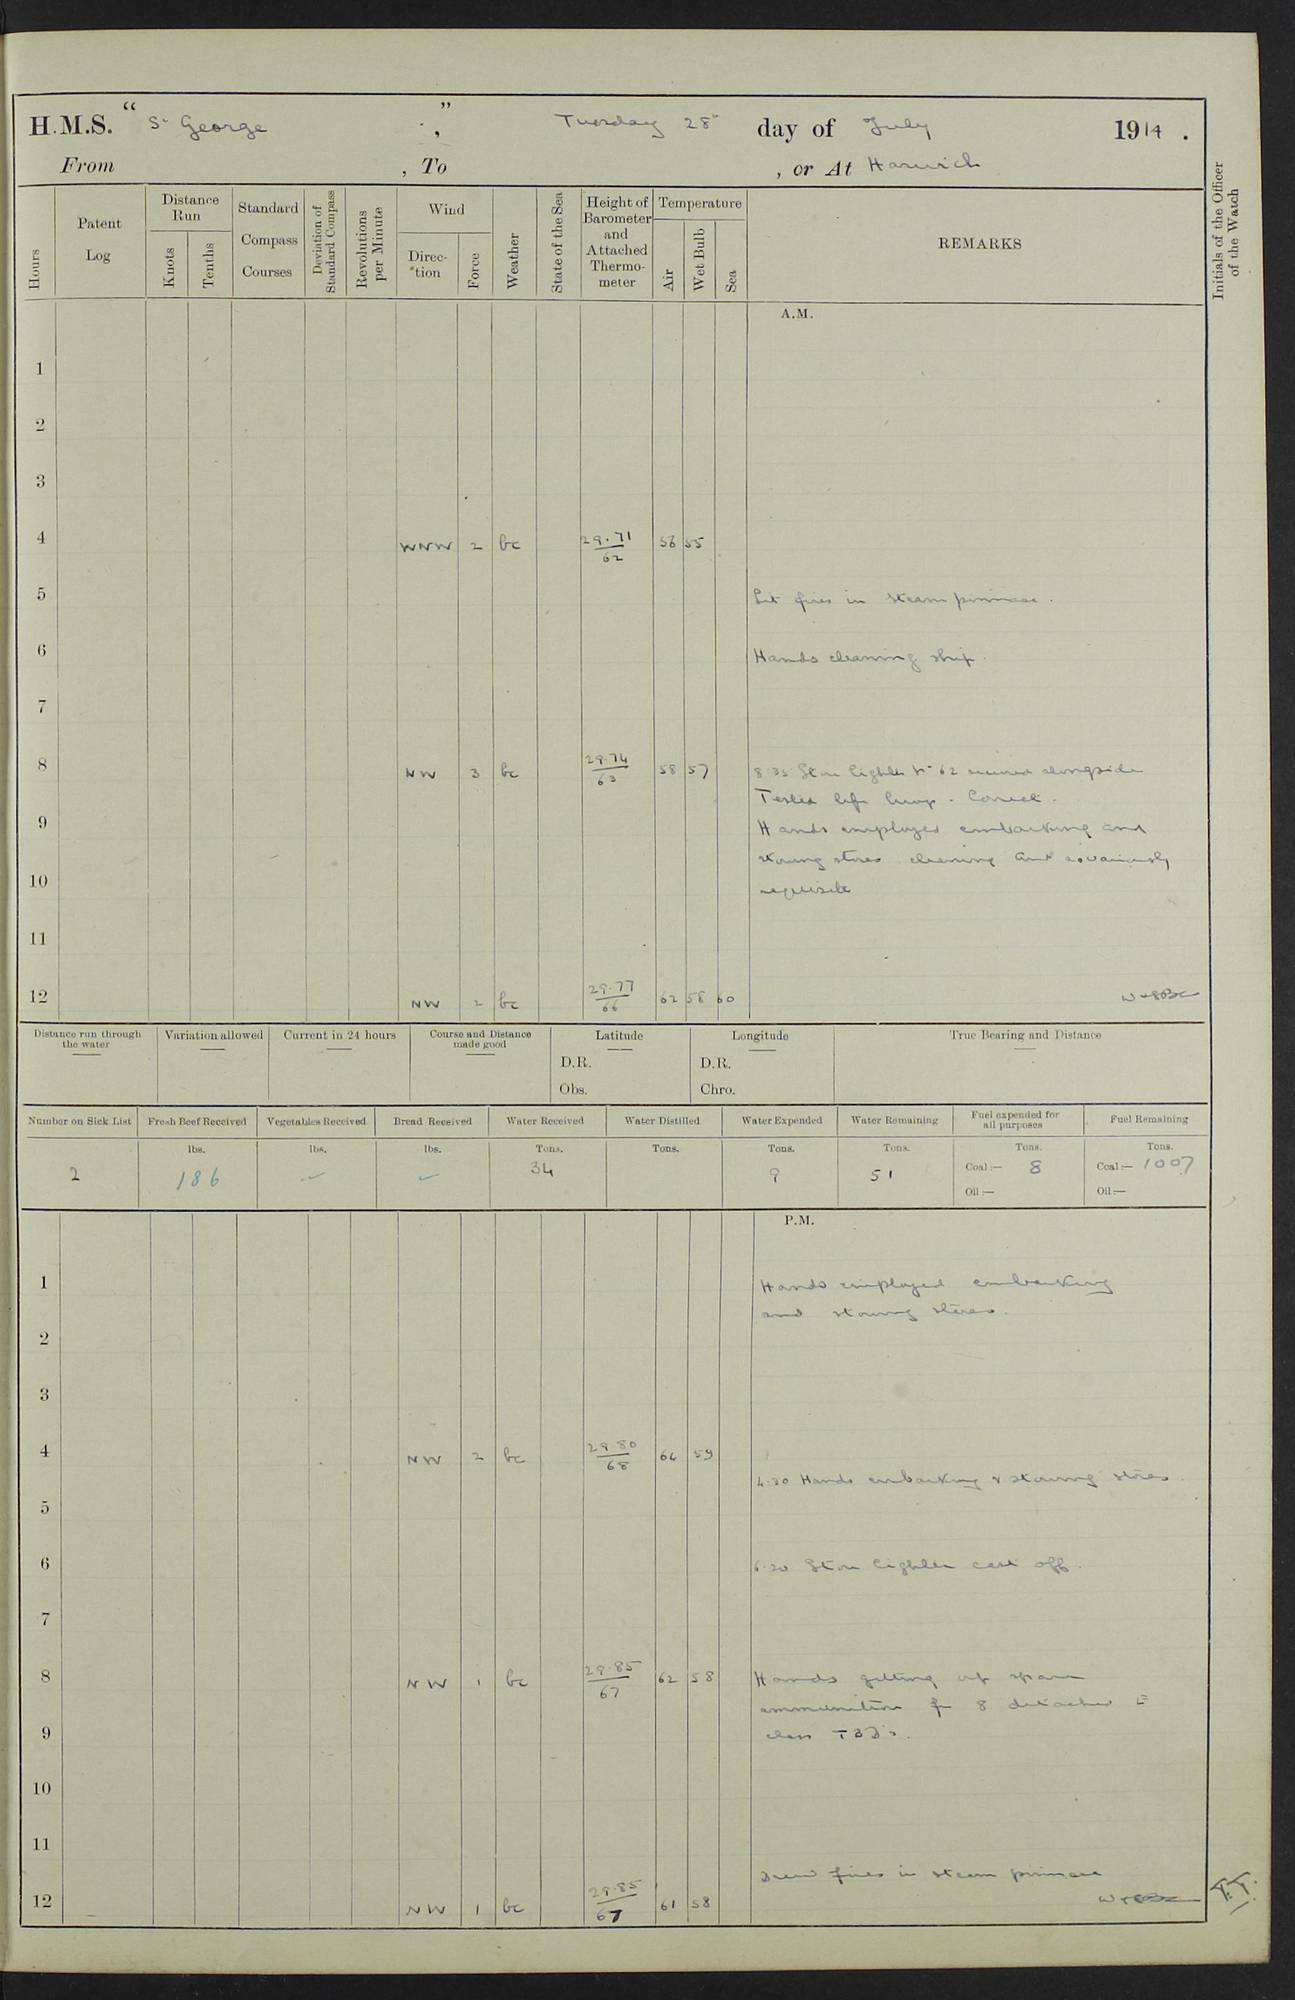 H.M.S. " St George ", Tuesday 28th day of July 1914.
From , To , or At Harwich
Hours
Patent Log
Distance Run
Knots
Tenths
Standard Compass Courses
Deviation of Standard Compass
Revolutions per Minute
Wind
Direction
Force
Weather
State of the Sea
Height of Barometer and Attached Thermometer
Temperature
Air
Wet Bulb
Sea
REMARKS
Initials of the Officer of the Watch
A.M.
1
2
3
4 WNW 2 bc 29.71 62 56 55
5 Lit fires in steam pinnace.
6 Hands cleaning ship.
7
8 NW 3 bc 29.74 63 58 57 8.35 Store lighter No 62 secured alongside
Tested life buoy. Correct.
9 Hands employed embarking and
stowing stores cleaning and as variously
10 requisite
11
12 NW 2 bc 29.77 66 62 58 60
Distance run through the water
Variation allowed
Current in 24 hours
Course and Distance made good
Latitude
D.R.
Obs.
Longitude
D.R.
Chro.
True Bearing and Distance
Number on Sick List
Fresh Beef Received
Vegetables Received
Bread Received
Water Received
Water Distilled
Water Expended
Water Remaining
Fuel expended for all purposes
Fuel Remaining
lbs. lbs. lbs. Tons. Tons. Tons. Tons. Tons. Tons.
2 186 34 9 51 Coal:— 8 Coal:— 1007
Oil:— Oil:—
P.M.
1 Hands employed embarking
and stowing stores.
2
3
4 NW 2 bc 29.80 68 64 59
4.30 Hands embarking & stowing stores.
5
6 6.20 Store lighter cast off.
7
8 NW 1 bc 29.85 67 62 58 Hands getting up spare
ammunition for 8 detached E
9 class TBD's.
10
11
Drew fires in steam pinnace
12 NW 1 bc 29.85 67 61 58